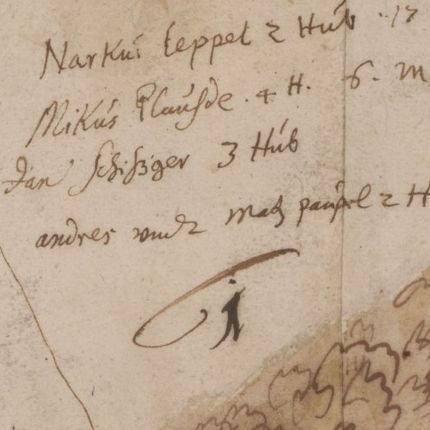 Narkus Leppel 2 Hub 17
Mikus Plausde . 4 H. 6. m
Jan Schißiger 3 Hub
andres vndt Matz paupel 2 H
i